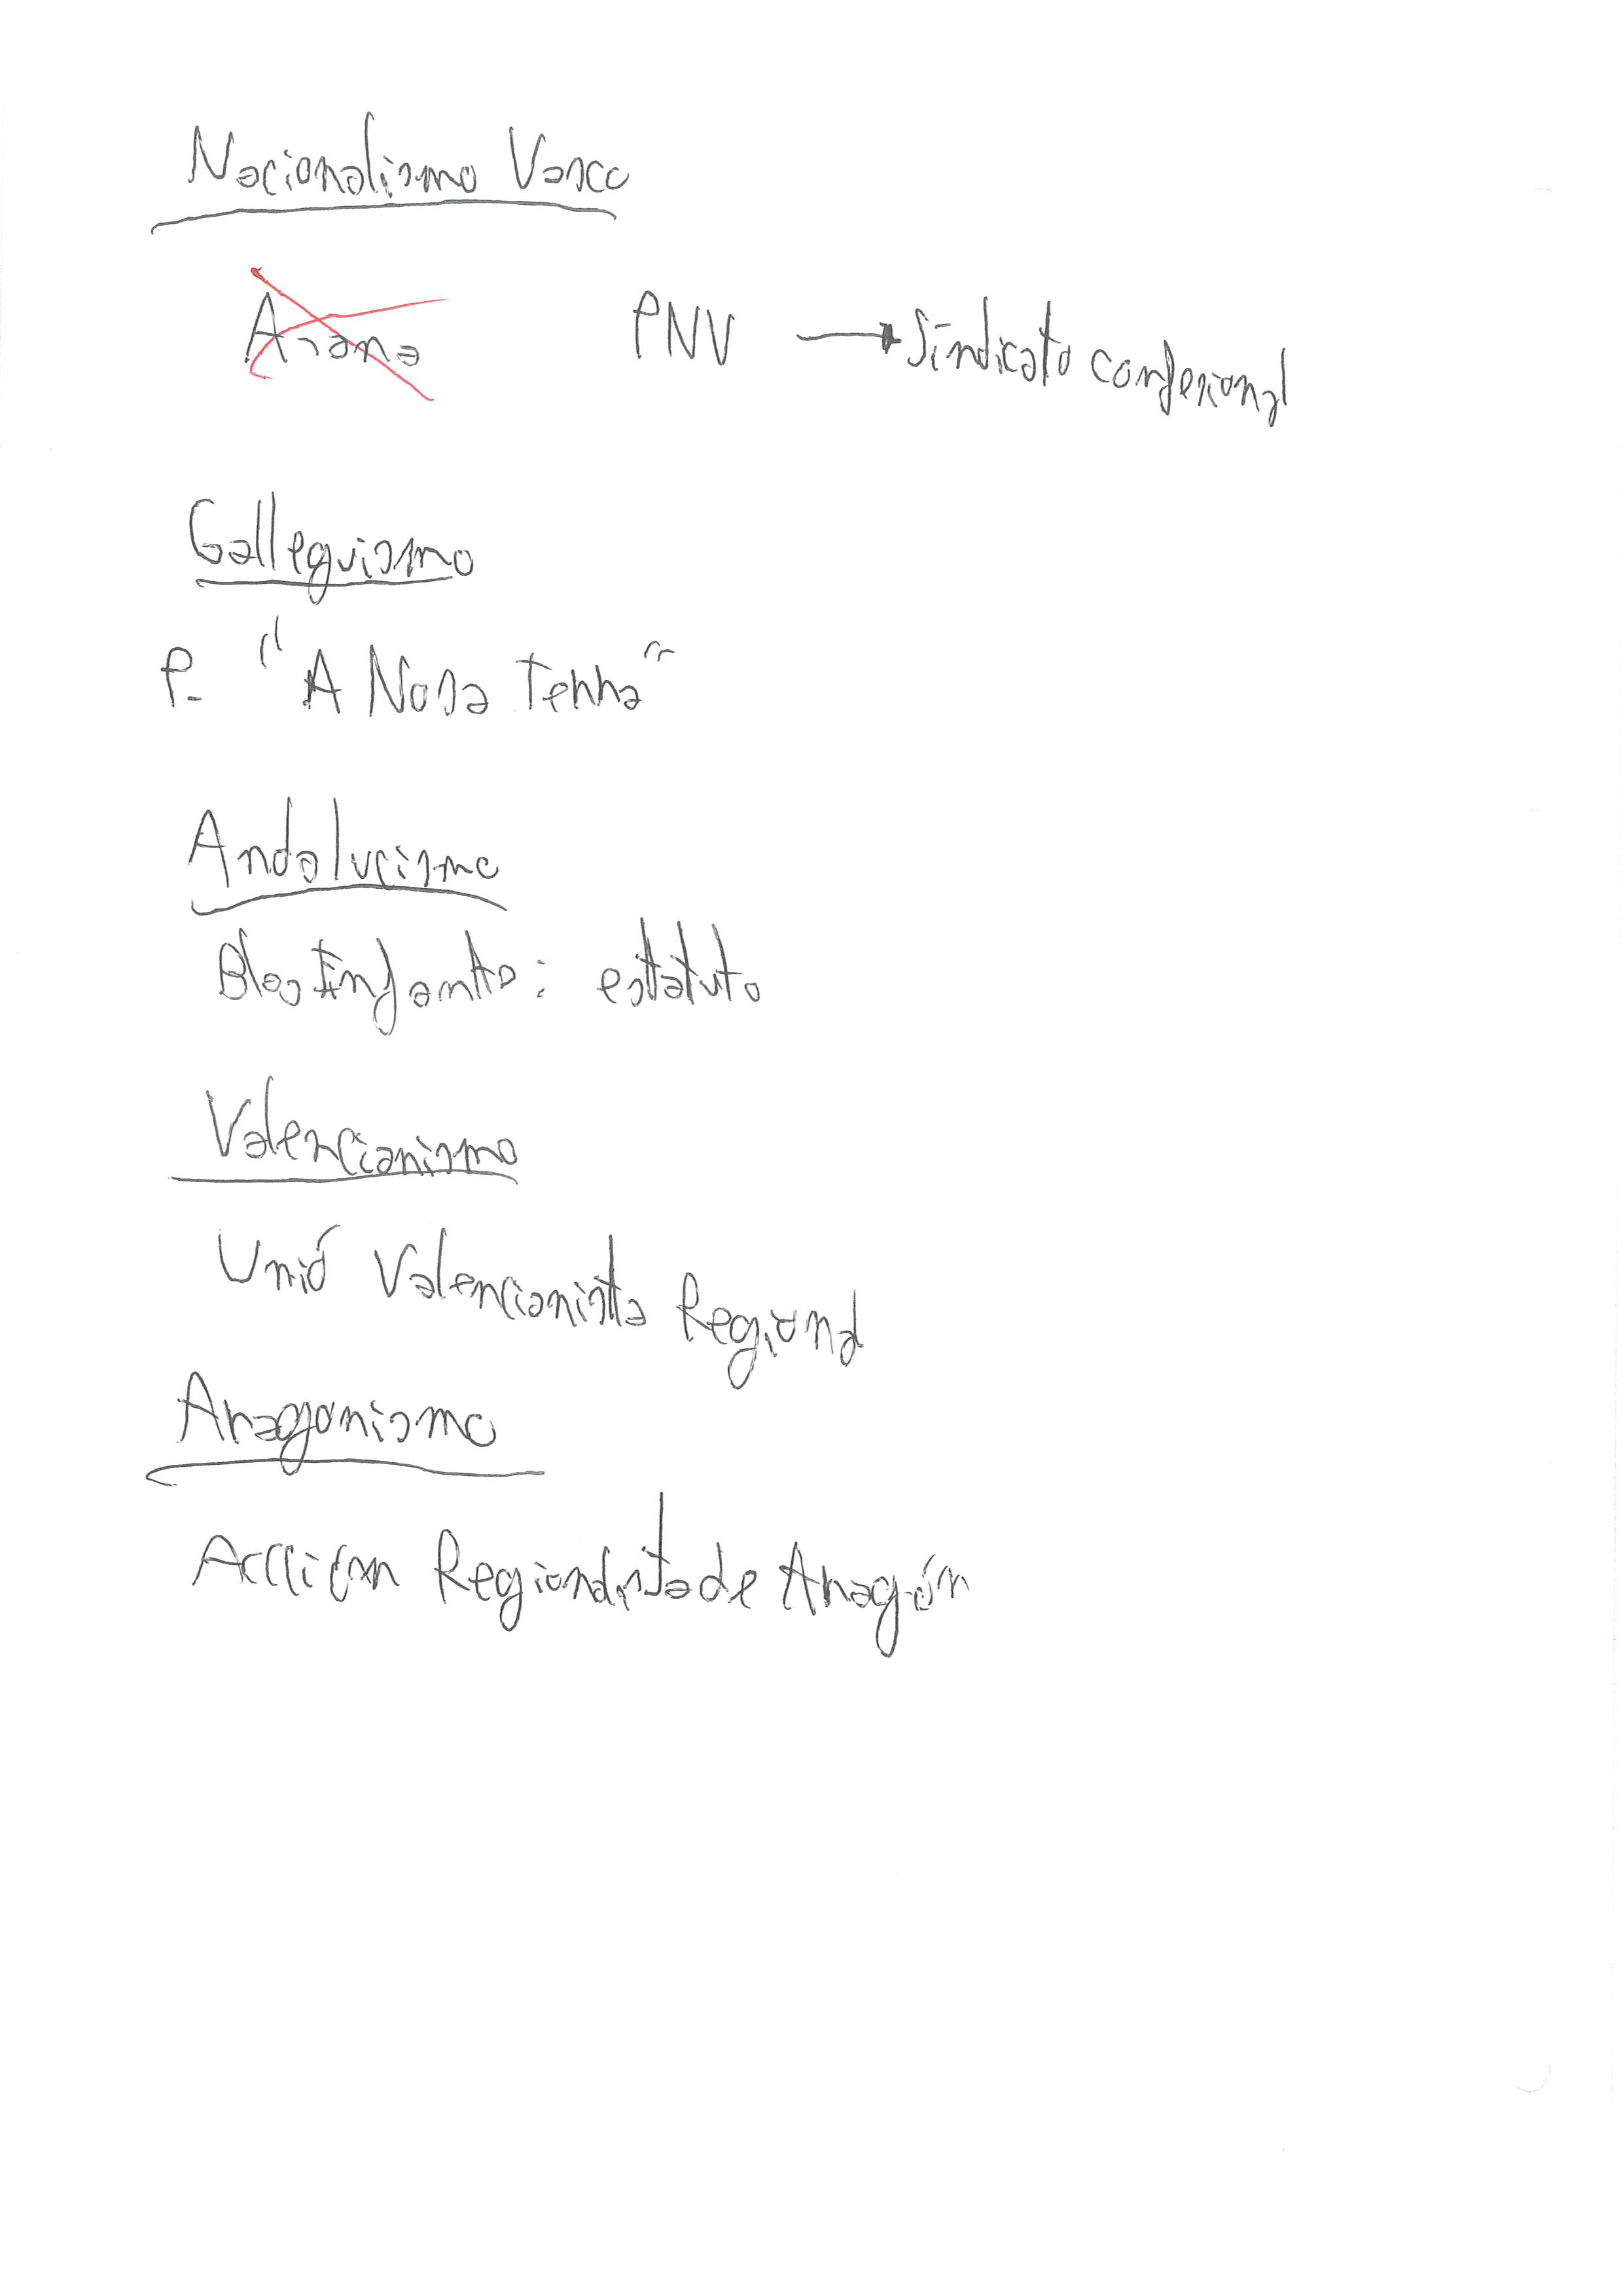 Nacionalismo Vasco
Arana PNV → Sindicato confesional
Galleguismo
P. "A Nosa Terra"
Andalucismo
Blas Infante: estatuto
Valencianismo
Unió Valencianista Regional
Aragonismo
Acción Regionalista de Aragón